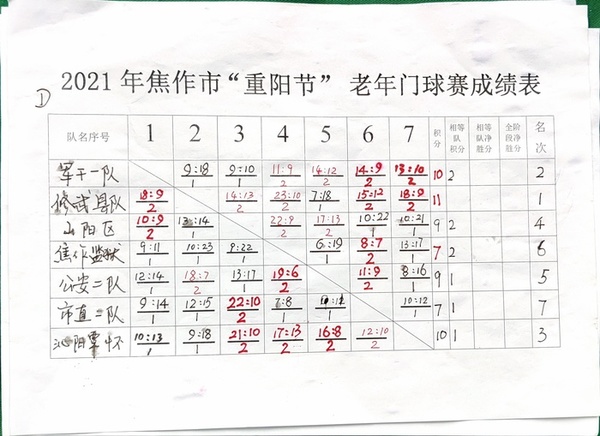 ①
2021年焦作市“重阳节” 老年门球赛成绩表
队名序号 1 2 3 4 5 6 7 积分 相等队积分 相等队净胜分 全阶段净胜分 名次
军干一队 9:18/1 9:10/1 11:9/2 14:12/2 14:9/2 13:10/2 10 2 2
修武县队 18:9/2 14:13/2 23:10/2 7:18/1 15:12/2 18:9/2 11 1
山阳区 10:9/2 13:14/1 22:9/2 17:13/2 10:22/1 10:21/1 9 2 4
焦作监狱 9:11/1 10:23/1 9:22/1 6:19/1 8:7/2 13:17/1 7 2 6
公安二队 12:14/1 18:7/2 13:17/1 19:6/2 11:9/2 8:16/1 9 1 5
市直二队 9:14/1 12:15/1 22:10/2 7:8/1 /1 10:12/1 7 1 7
沁阳覃怀 10:13/1 9:18/1 21:10/2 17:13/2 16:8/2 12:10/2 10 1 3